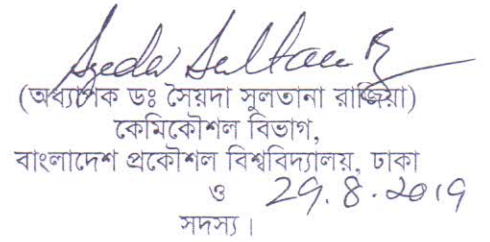 Syeda Sultana R
(অধ্যাপক ডঃ সৈয়দা সুলতানা রাজিয়া)
কেমিকৌশল বিভাগ,
বাংলাদেশ প্রকৌশল বিশ্ববিদ্যালয়, ঢাকা
ও 29.8.2019
সদস্য।